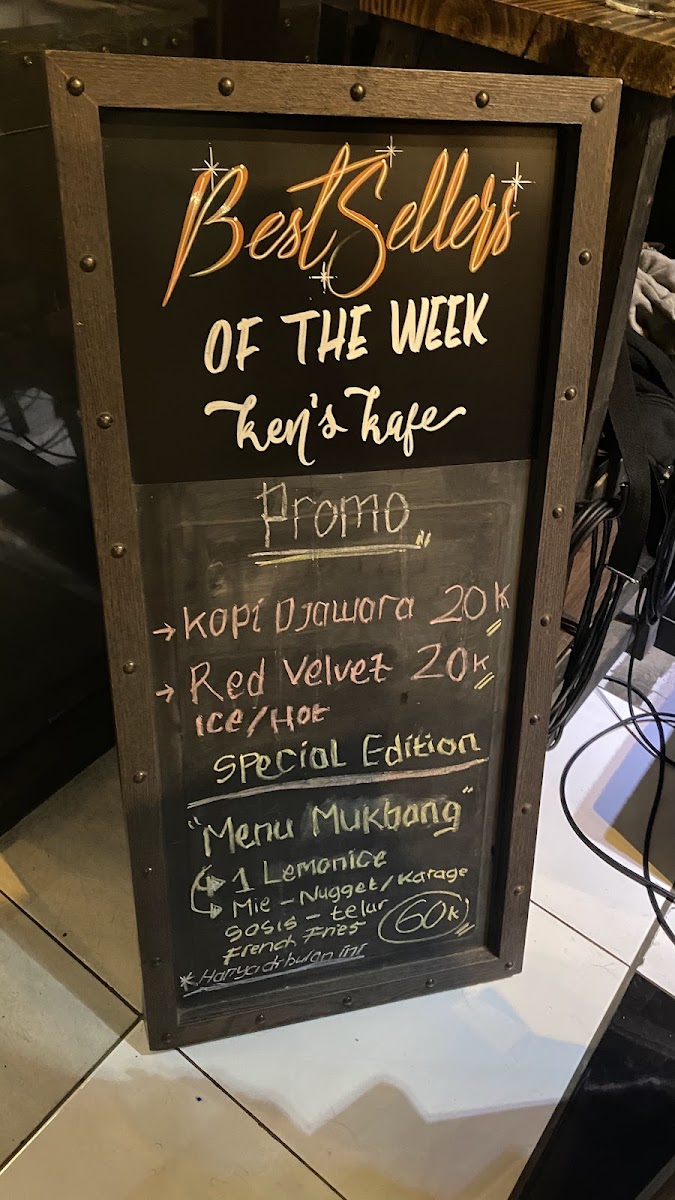 Best Sellers
OF THE WEEK
ken's kafe
Promo
→ Kopi Djawara 20K
→ Red Velvet 20K
ICE/HOT
Special Edition
"Menu Mukbang"
1 Lemonice
Mie - Nugget/Karage
Sosis - telur
French Fries
60K
* Hanya di bulan ini